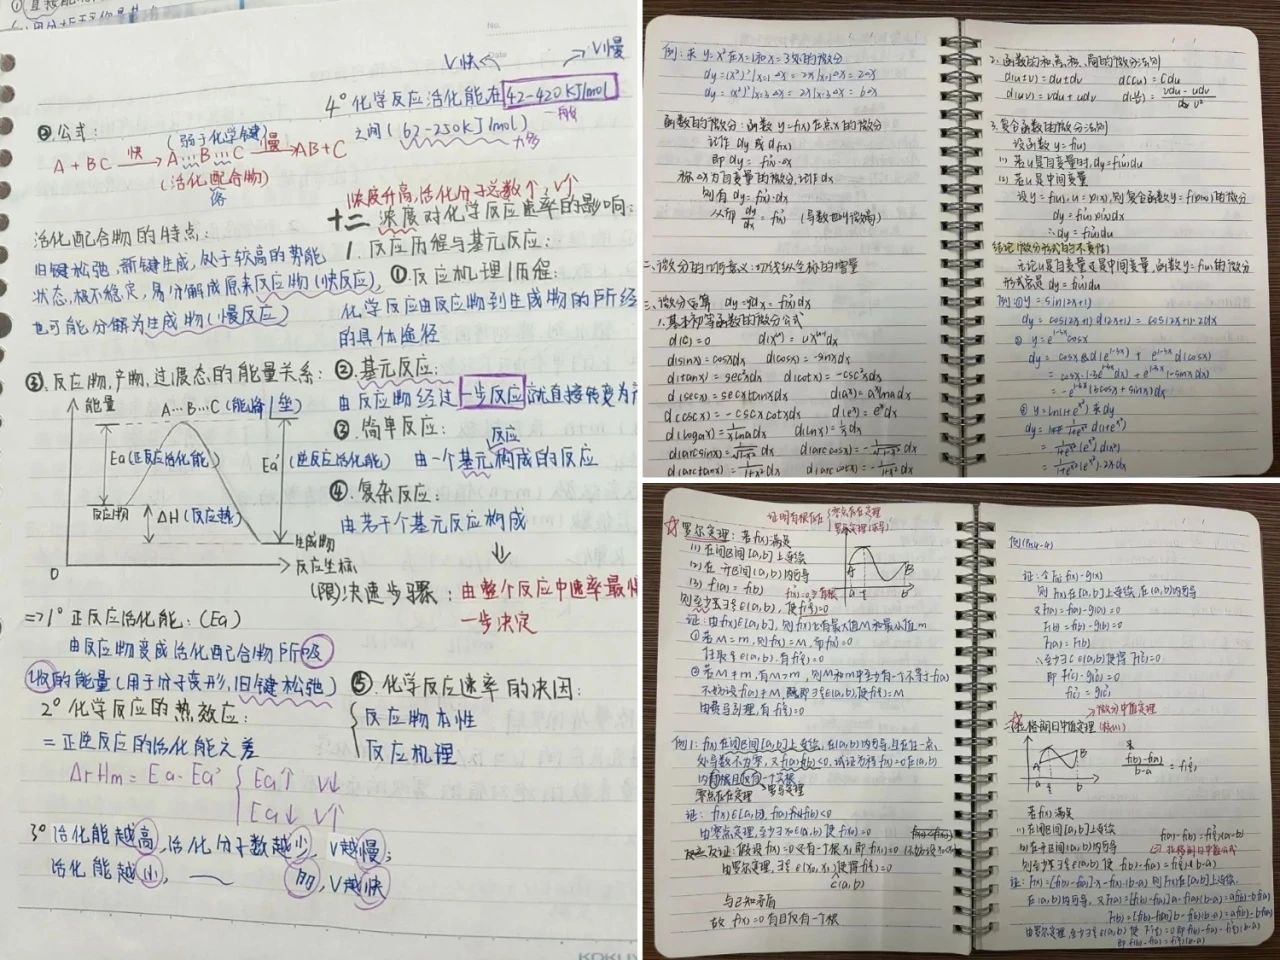 No.
Date
V快 V慢
4° 化学反应活化能在42-420KJ/mol
之间(62-250KJ/mol) 一般
大多
②公式:
(弱于化学键)
A + BC 快 A…B…C 慢 AB + C
(活化配合物)
浓度升高,活化分子总数↑,V↑
十二、浓度对化学反应速率的影响:
1. 反应历程与基元反应:
①反应机理/历程:
化学反应由反应物到生成物的所经
的具体途径
活化配合物的特点:
旧键松弛,新键生成,处于较高的势能
状态,极不稳定,易分解成原来反应物(快反应),
也可能分解为生成物(慢反应)
③.反应物,产物,过渡态的能量关系:
能量
A…B…C(能峰/垒)
Ea(正反应活化能)
Ea'(逆反应活化能)
反应物
ΔH(反应热)
生成物
反应坐标
0
②.基元反应:
由反应物经过一步反应就直接转变为
③.简单反应:
反应
由一个基元构成的反应
④.复杂反应:
由若干个基元反应构成
(限)决速步骤: 由整个反应中速率最慢
一步决定
=>1° 正反应活化能:(Ea)
由反应物变成活化配合物所吸
收的能量(用于分子变形,旧键松弛)
2° 化学反应的热效应:
=正逆反应的活化能之差
ΔrHm = Ea - Ea' { Ea↑ V↓
Ea↓ V↑
3° 活化能越高,活化分子数越少,V越慢;
活化能越小, ~ 多,V越快
⑤.化学反应速率的决因:
反应物本性
反应机理
KOKU
例:求 y=x²在x=1和x=3处的微分
dy=(x²)'|x=1·Δx = 2x|x=1·Δx = 2Δx
dy=(x²)'|x=3·Δx = 2x|x=3·Δx = 6Δx
函数的微分:函数y=f(x)在点x的微分
记作 dy 或 df(x)
即 dy = f'(x)·Δx
称Δx为自变量的微分,记作dx
则有 dy = f'(x)·dx
从而 dy/dx = f'(x) (导数也叫微商)
二、微分的几何意义:切线纵坐标的增量
三、微分运算 dy=y'dx = f'(x)dx
1.基本初等函数的微分公式
d(C)=0 d(x^u)=ux^(u-1)dx
d(sinx)=cosxdx d(cosx)=-sinxdx
d(tanx)=sec²xdx d(cotx)=-csc²xdx
d(secx)=secxtanxdx d(a^x)=a^x lna dx
d(cscx)=-cscxcotxdx d(e^x)=e^x dx
d(log_a x)=1/(xlna)dx d(lnx)=1/x dx
d(arcsinx)=1/√(1-x²)dx d(arccosx)=-1/√(1-x²)dx
d(arctanx)=1/(1+x²)dx d(arccotx)=-1/(1+x²)dx
2.函数的和、差、积、商的微分法则
d(u±v)=du±dv d(Cu)=Cdu
d(uv)=vdu+udv d(u/v)=(vdu-udv)/v²
3.复合函数的微分法则
设函数y=f(u)
(1) 若u是自变量时,dy=f'(u)du
(2) 若u是中间变量
设y=f(u),u=φ(x),则复合函数y=f(φ(x))的微分
dy=f'(u)φ'(x)dx
∴dy=f'(u)du
结论(微分形式的不变性)
无论u是自变量还是中间变量,函数y=f(u)的微分
形式总是 dy=f'(u)du
例 ① y=sin(2x+1)
dy=cos(2x+1)d(2x+1)=cos(2x+1)·2dx
② y=e^(1-3x)cosx
dy=cosx d(e^(1-3x)) + e^(1-3x) d(cosx)
=cosx·(-3e^(1-3x)dx) + e^(1-3x)(-sinx)dx
=-e^(1-3x)(3cosx+sinx)dx
③ y=ln(1+e^(x²)) 求dy
dy=1/(1+e^(x²)) d(1+e^(x²))
=1/(1+e^(x²))·(e^(x²))d(x²)
=1/(1+e^(x²))·(e^(x²))·2xdx
证明有根存在 零点存在定理
罗尔定理:若f(x)满足
(1) 在闭区间[a,b]上连续
(2) 在开区间(a,b)内可导
(3) f(a)=f(b)
则至少∃ξ∈(a,b),使f'(ξ)=0
A B
a ξ b
证:由f(x)∈[a,b],则f(x)必有最大值M和最小值m
①若M=m,则f(x)=M,而f'(x)=0
任取ξ∈(a,b).有f'(ξ)=0
②若M≠m,有M>m,则M和m中至少有一个不等于f(a)
不妨设f(a)≠M,则∃ξ∈(a,b),使f(ξ)=M
由费马引理,有f'(ξ)=0
例1: f(x)在闭区间[a,b]上连续,在(a,b)内可导,且在任一点,
处导数不为零,又f(a)·f(b)<0,试证方程f(x)=0在(a,b)
内有且仅有一个根
零点存在定理 罗尔定理
证: f(x)∈[a,b],f(a)·f(b)<0
由零点定理,至少∃x₀∈(a,b)使f(x₀)=0
反证:假设f(x)=0又有一个根x₁,即f(x₁)=0
由罗尔定理,∃ξ∈(x₀,x₁)使得f'(ξ)=0
⊂(a,b)
与已知矛盾
故 f(x)=0有且仅有一个根
证:令F(x)=f(x)-g(x)
则F(x)在[a,b]上连续,在(a,b)内可导
又F(a)=f(a)-g(a)=0
F(b)=f(b)-g(b)=0
F(a)=F(b)
∴至少∃ξ∈(a,b)使得F'(ξ)=0
即f'(ξ)-g'(ξ)=0
f'(ξ)=g'(ξ)
微分中值定理
二、拉格朗日中值定理
A B
a ξ b
(f(b)-f(a))/(b-a) = f'(ξ)
若f(x)满足
(1) 在闭区间[a,b]上连续
(2) 在开区间(a,b)内可导
则至少∃ξ∈(a,b)使f(b)-f(a)=f'(ξ)(b-a)
拉格朗日中值公式
证:F(x)=[f(b)-f(a)]·x-f(x)·(b-a) 则F(x)在[a,b]上连续,
在(a,b)内可导,又F(a)=[f(b)-f(a)]·a-f(a)(b-a)=af(b)-bf(a)
F(b)=[f(b)-f(a)]b-f(b)(b-a)=af(b)-bf(a)
由罗尔定理,至少∃ξ∈(a,b)使F'(ξ)=0即f(b)-f(a)-f'(ξ)(b-a)
即f(b)-f(a)=f'(ξ)(b-a)